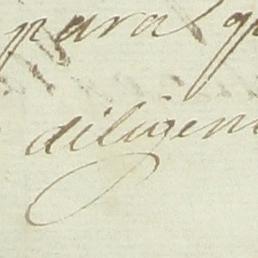 para q
diligen